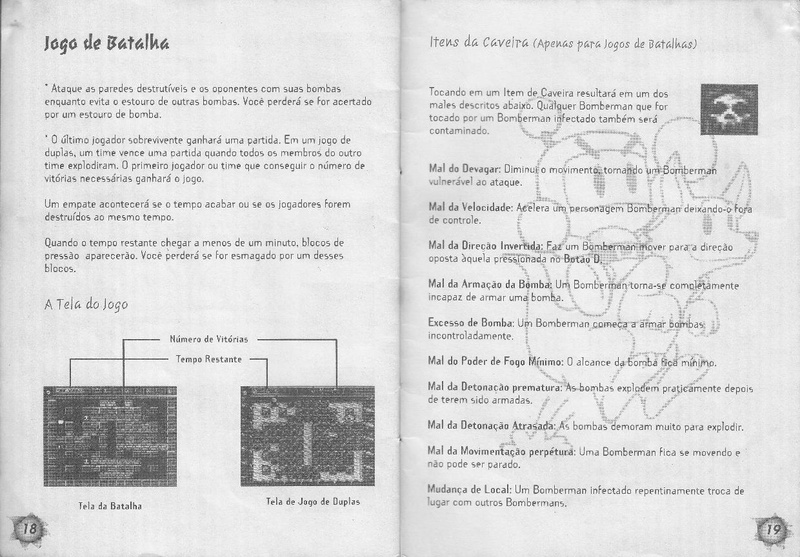 Jogo de Batalha
* Ataque as paredes destrutíveis e os oponentes com suas bombas
enquanto evita o estouro de outras bombas. Você perderá se for acertado
por um estouro de bomba.
* O último jogador sobrevivente ganhará uma partida. Em um jogo de
duplas, um time vence uma partida quando todos os membros do outro
time explodiram. O primeiro jogador ou time que conseguir o número de
vitórias necessárias ganhará o jogo.
Um empate acontecerá se o tempo acabar ou se os jogadores forem
destruídos ao mesmo tempo.
Quando o tempo restante chegar a menos de um minuto, blocos de
pressão aparecerão. Você perderá se for esmagado por um desses
blocos.
A Tela do Jogo
Número de Vitórias
Tempo Restante
Tela da Batalha
Tela de Jogo de Duplas
18
Itens da Caveira (Apenas para Jogos de Batalhas)
Tocando em um Item de Caveira resultará em um dos
males descritos abaixo. Qualquer Bomberman que for
tocado por um Bomberman infectado também será
contaminado.
Mal do Devagar: Diminui o movimento, tornando um Bomberman
vulnerável ao ataque.
Mal da Velocidade: Acelera um personagem Bomberman deixando-o fora
de controle.
Mal da Direção Invertida: Faz um Bomberman mover para a direção
oposta àquela pressionada no Botão D.
Mal da Armação da Bomba: Um Bomberman torna-se completamente
incapaz de armar uma bomba.
Excesso de Bomba: Um Bomberman começa a armar bombas
incontroladamente.
Mal do Poder de Fogo Mínimo: O alcance da bomba fica mínimo.
Mal da Detonação prematura: As bombas explodem praticamente depois
de terem sido armadas.
Mal da Detonação Atrasada: As bombas demoram muito para explodir.
Mal da Movimentação perpétura: Uma Bomberman fica se movendo e
não pode ser parado.
Mudança de Local: Um Bomberman infectado repentinamente troca de
lugar com outros Bombermans.
19